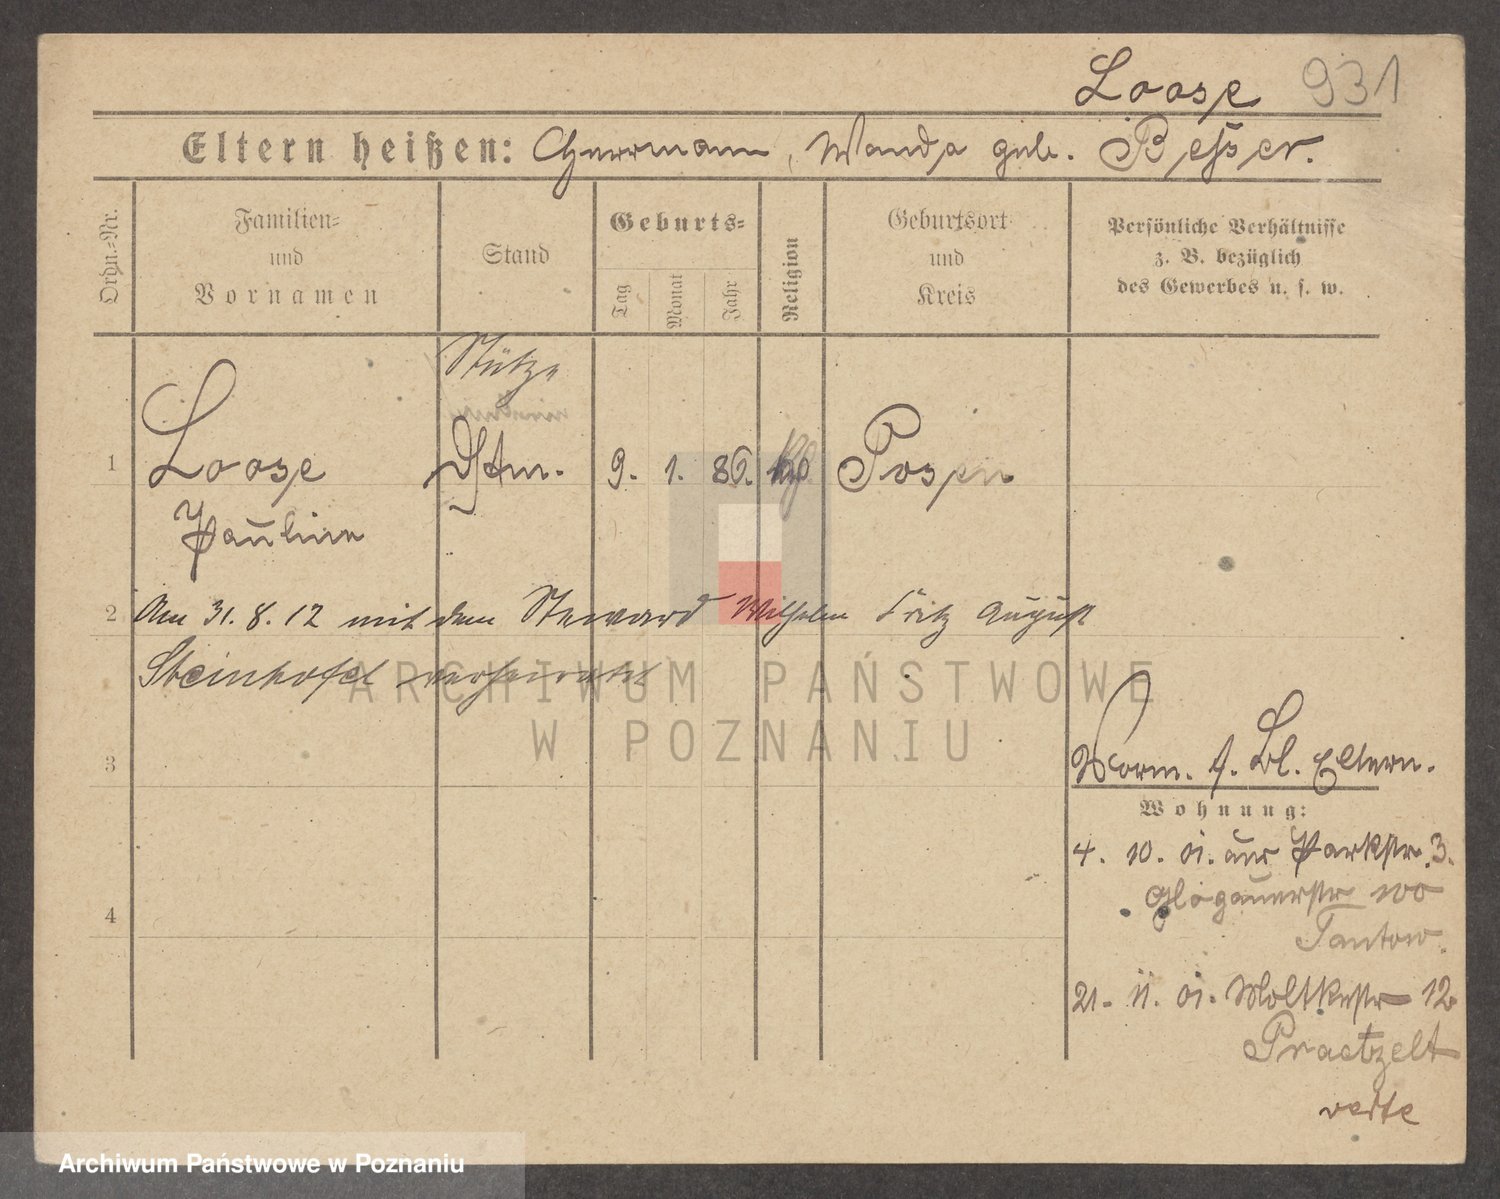 Loose 931
Eltern heißen: Herrmann, Wanda geb. Besser.
Ordn.=Nr.
Familien= und Vornamen
Stand
Geburts=
Tag
Monat
Jahr
Religion
Geburtsort und Kreis
Persönliche Verhältnisse
z. B. bezüglich
des Gewerbes u. s. w.
Stütze
1 Loose 9. 1. 86. Posen
Pauline
2 Am 31. 8. 12 mit dem Steward Wilhelm Fritz August
Steinhofel verheiratet
ARCHIWUM PAŃSTWOWE
W POZNANIU
3
Vorm. f. Bl. Eltern.
Wohnung:
4. 10. 01. aus Parkstr. 3.
Glogauerstr 100
Tantow.
4
21. 11. 01. Moltkestr 12
Praetzelt
verte
Archiwum Państwowe w Poznaniu